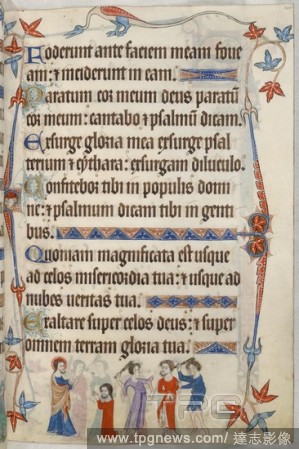 Foderunt ante faciem meam foue
am: ⁊ inciderunt in eam.
Paratum cor meum deus paratū
cor meum: cantabo ⁊ psalmū dicam.
Exsurge gloria mea exsurge psal
terium ⁊ cythara: exsurgam diluculo.
Confitebor tibi in populis domi
ne: ⁊ psalmum dicam tibi in genti
bus.
Quoniam magnificata est usque
ad celos misericordia tua: ⁊ usque ad
nubes ueritas tua.
Exaltare super celos deus: ⁊ super
omnem terram gloria tua.
TPG
www.tpgnews.com / 達志影像